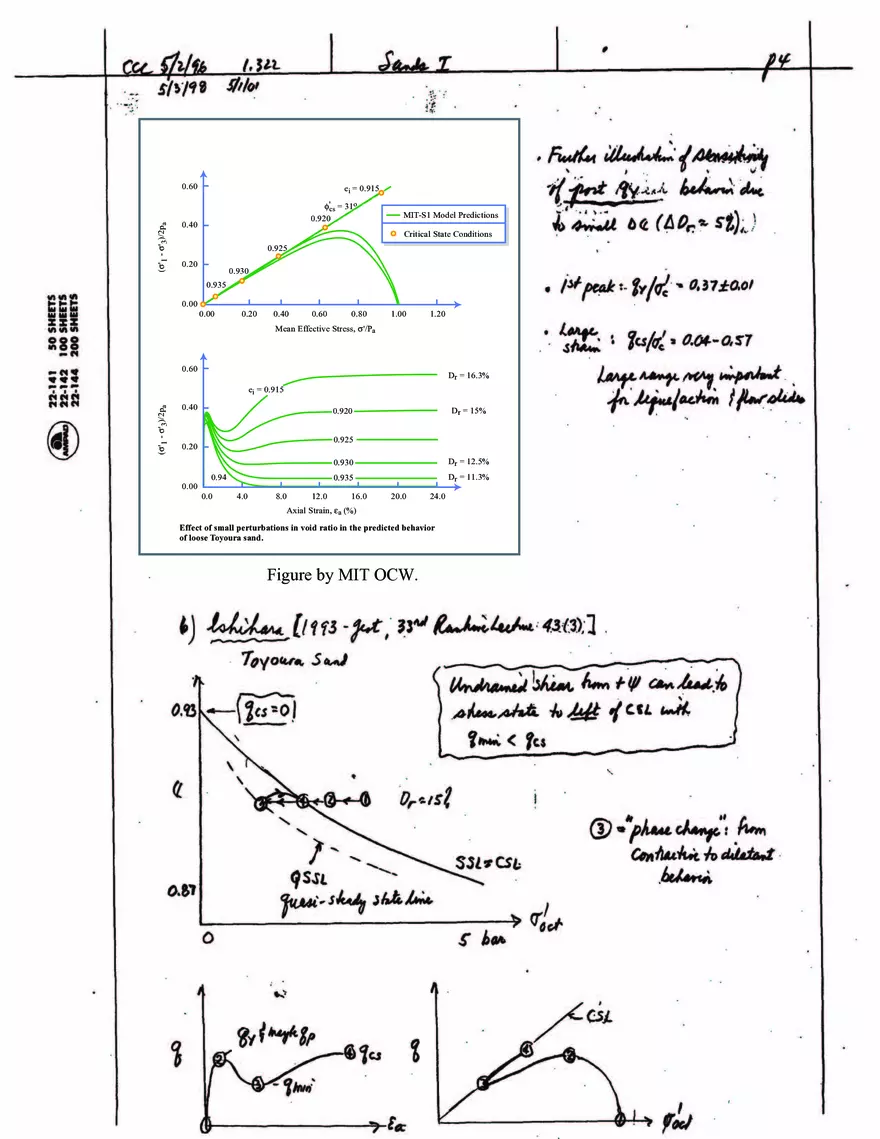 CCL 5/2/96 1.322 Sands I p4
5/3/98 5/1/01
22-141 50 SHEETS
22-142 100 SHEETS
22-144 200 SHEETS
AMPAD
0.60
0.40
0.20
0.00
(σ'1 - σ'3)/2pa
ei = 0.915
ϕ'cs = 31°
0.920
0.925
0.930
0.935
MIT-S1 Model Predictions
Critical State Conditions
0.00 0.20 0.40 0.60 0.80 1.00 1.20
Mean Effective Stress, σ'/Pa
0.60
0.40
0.20
0.00
(σ'1 - σ'3)/2pa
ei = 0.915
Dr = 16.3%
0.920
Dr = 15%
0.925
0.930
Dr = 12.5%
0.94
0.935
Dr = 11.3%
0.0 4.0 8.0 12.0 16.0 20.0 24.0
Axial Strain, εa (%)
Effect of small perturbations in void ratio in the predicted behavior
of loose Toyoura sand.
Figure by MIT OCW.
• Further illustration of sensitivity
of post behavior due
to small Δe (ΔDr ≈ 5%)
• 1st peak: qy/σ'c = 0.37±0.01
• Large
strain : qcs/σ'c = 0.04-0.57
Large range very important
for liquefaction & flow slides
b) Ishihara [1993-Geot, 33rd Rankine Lecture 43(3)]
Toyoura Sand
Undrained shear from +ψ can lead to
stress state to left of CSL with
qmin < qcs
0.93
qcs=0
e
3 4 2 1
Dr=15%
SSL=CSL
QSSL
quasi-steady state line
0.87
0
5 bar
σ'oct
③ = "phase change": from
contractive to dilatant
behavior
q
qy & maybe qp
2
3
qmin
4
qcs
1
εa
q
CSL
4
2
3
1
σ'oct